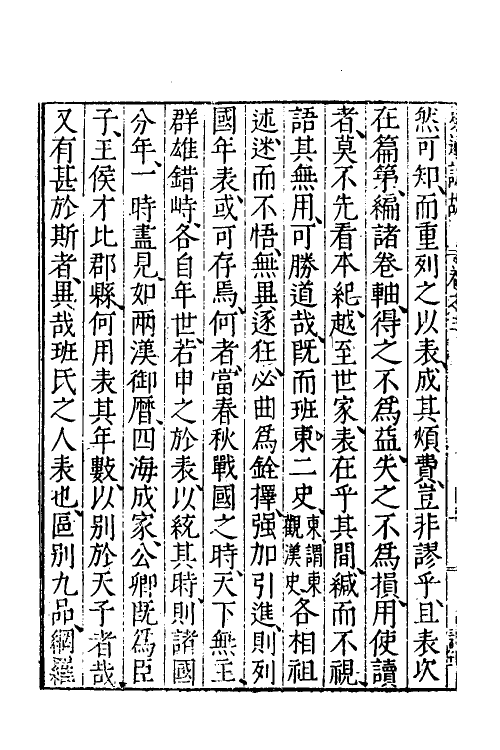 然可知而重列之以表成其煩費豈非謬乎且表次
在篇第編諸卷軸得之不爲益失之不爲損用使讀
者莫不先看本紀越至世家表在乎其間緘而不視
語其無用可勝道哉旣而班東二史東謂東觀漢史各相祖
述迷而不悟無異逐狂必曲爲銓擇强加引進則列
國年表或可存焉何者當春秋戰國之時天下無主
群雄錯峙各自年世若申之於表以統其時則諸國
分年一時盡見如兩漢御曆四海成家公卿旣爲臣
子王侯才比郡縣何用表其年數以別於天子者哉
又有甚於斯者異哉班氏之人表也區別九品網羅